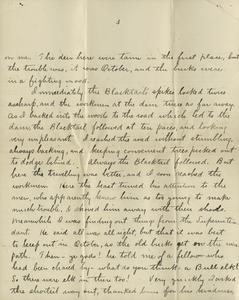 3
on me. The deer here were tame in the first place, but
the trouble was, it was October, and the bucks were
in a fighting mood.
Immediately the Blacktail's spikes looked twice
as sharp, and the workmen at the dam twice as far away.
As I backed into the woods to the road which led to the
dam, the Blacktail followed at ten paces, and looking
very unpleasant. I reached the road without stumbling,
always backing, and keeping convenient trees picked out
to dodge behind. Always the Blacktail followed. But
here the travelling was better, and I soon reached the
workmen. Here the beast turned his attention to the
men, who apparently knew him as too going to make
much trouble, & shoved him away with their shovels.
Meanwhile I was finding out things from the Superinten-
dant. He said all was all right, but that it was best
to keep out in October, as the old bucks get on the war
path. Then - ye gods! he told me of a fellow who
had been chased by - what do you think - a Bull elk!
So there were elk in there too! Very quickly I asked
the shortest way out, thanked him for his kindness